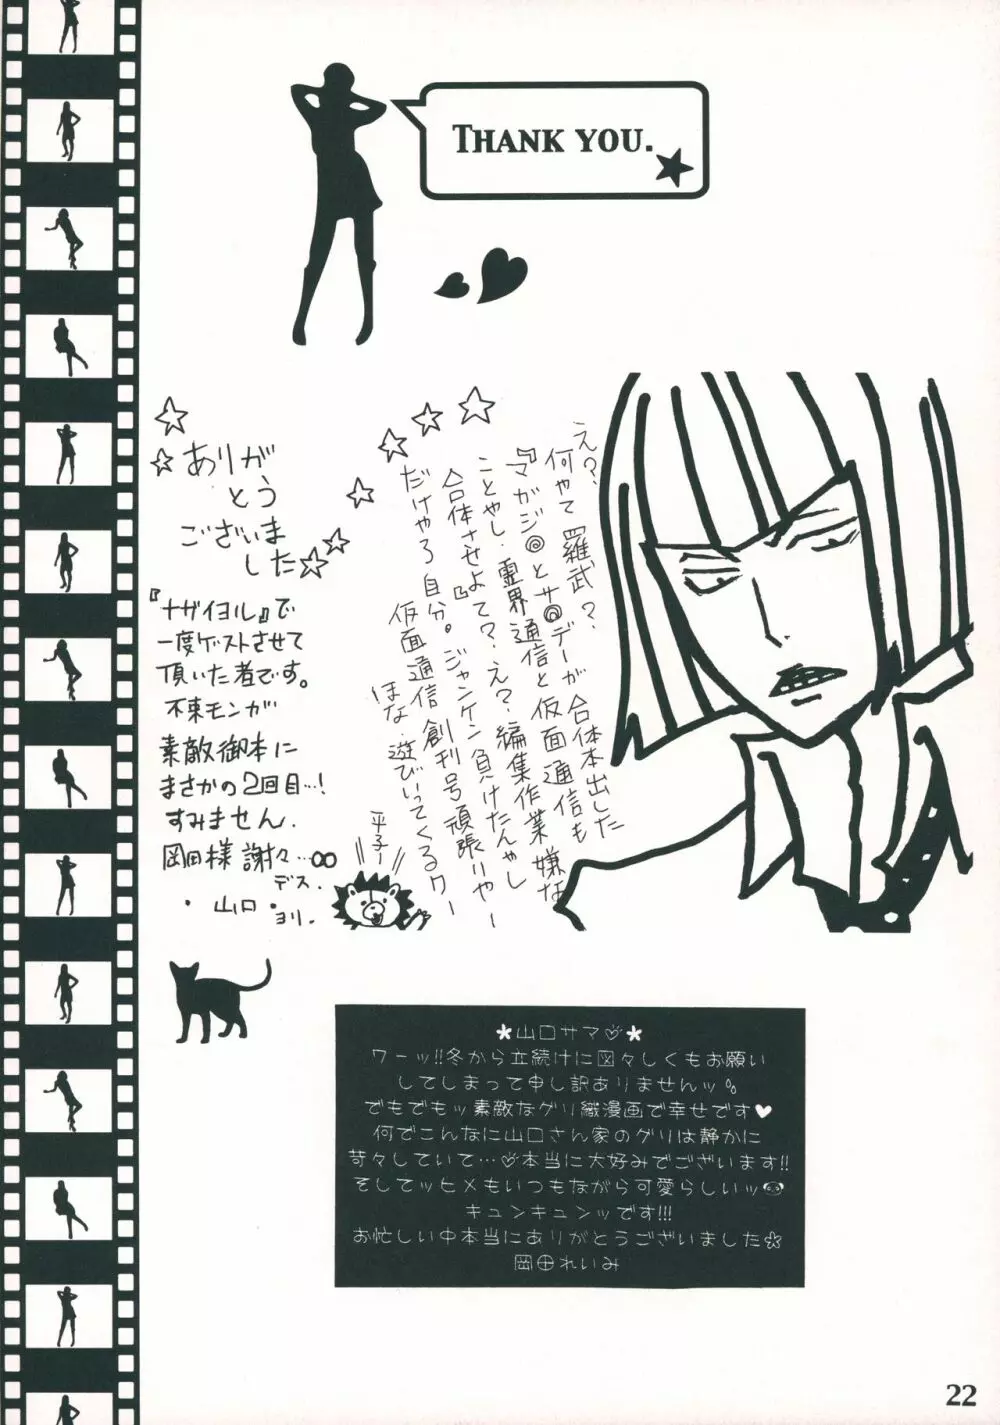 THANK YOU.
え？
何やて 羅武？
『マガジ◎とサ◎デーが合体本出した
ことやし、霊界通信と仮面通信も
合体させよて？え？編集作業嫌な
だけやろ自分。ジャンケン負けたんやし
仮面通信創刊号頑張りやー
ほな、遊びいってくるワー
平子ー
ありがとうございました
『ナザイヨル』で
一度ゲストさせて
頂いた者です。
不束モンが
素敵御本に
まさかの2回目…！
すみません.
岡田様 謝々…∞
デス.
・山口・ヨリ.
*山口サマ♡*
ワーッ!!冬から立続けに図々しくもお願い
してしまって申し訳ありませんッ。
でもでもッ素敵なグリ織漫画で幸せです♥
何でこんなに山口さん家のグリは静かに
苛々していて…♡本当に大好みでございます!!
そしてッヒメもいつもながら可愛らしいッ
キュンキュンッです!!!
お忙しい中本当にありがとうございました☆
岡田れいみ
22